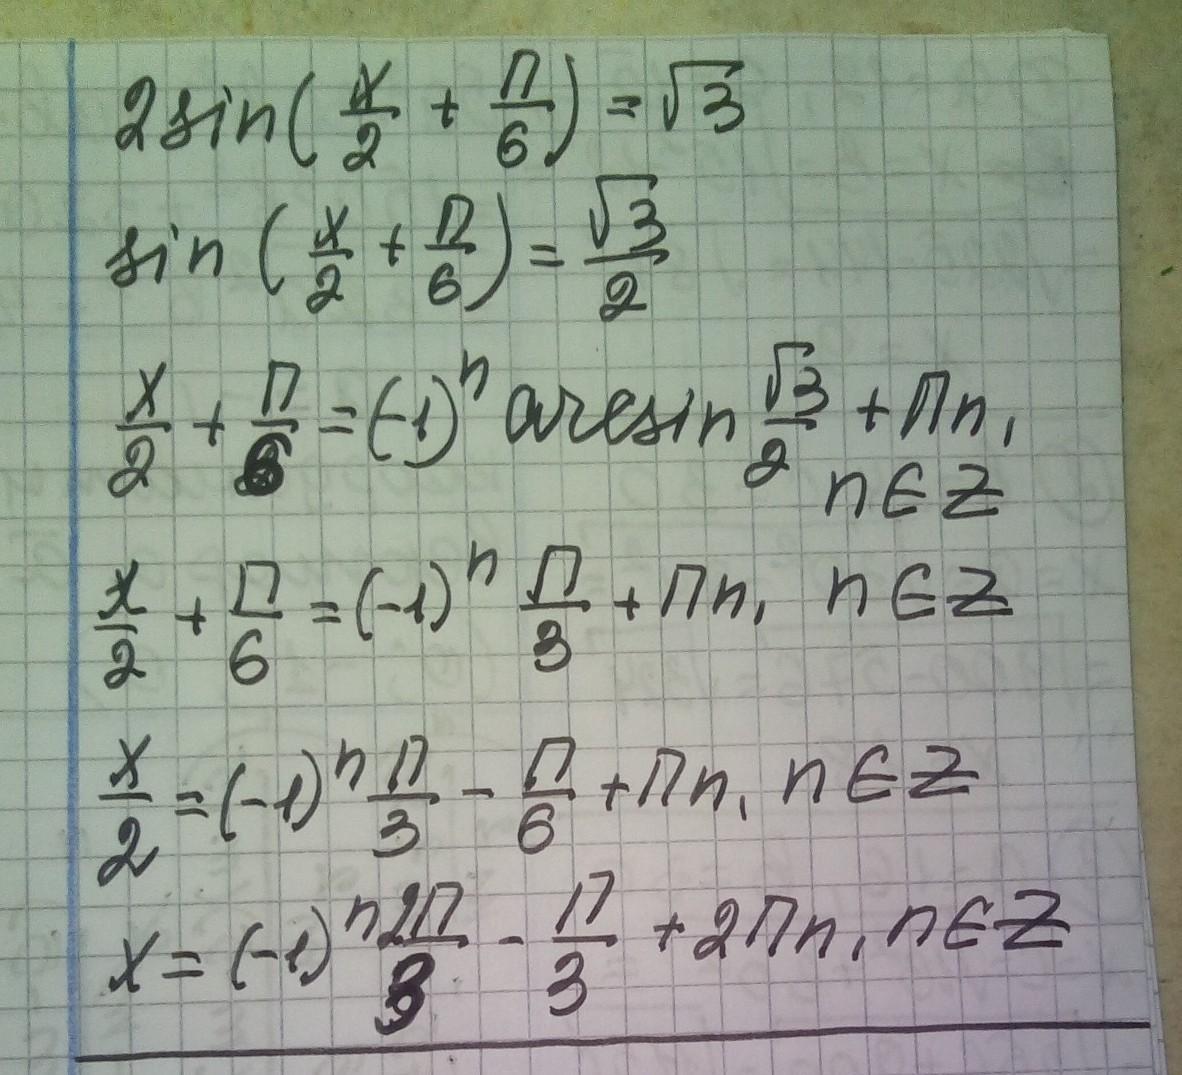 2sin(x/2 + П/6) = √3
sin(x/2 + П/6) = √3/2
x/2 + П/6 = (-1)ⁿ arcsin √3/2 + Пn,
n ∈ Z
x/2 + П/6 = (-1)ⁿ П/3 + Пn, n ∈ Z
x/2 = (-1)ⁿ П/3 - П/6 + Пn, n ∈ Z
x = (-1)ⁿ 2П/3 - П/3 + 2Пn, n ∈ Z